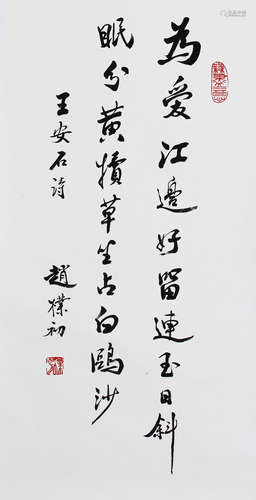 為愛江邊好留連至日斜
眠分黃犢草坐占白鷗沙
王安石詩
趙樸初